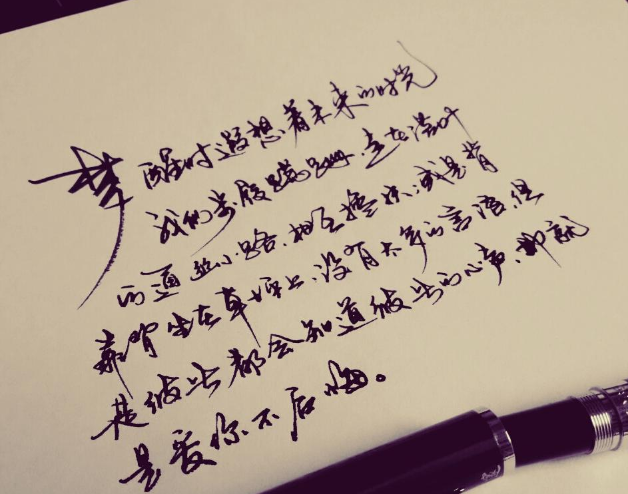 梦醒时遐想着未来的时光
我们步履蹒跚,走在落叶
的通幽小路,相互搀扶;或是背
靠背坐在草坪上,没有太多的言语,但
是彼此都会知道彼此的心声,那就
是爱你不后悔。